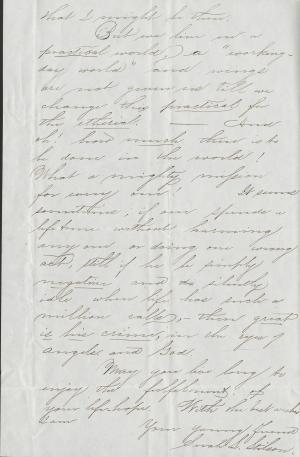 that I might be there.
But we live in a
practical world, a "working-
day world" and wings
are not given us till we
change this practical for
the etherial. — And
oh! how much there is to
be done in the world!
What a mighty mission
for every one! It seems
sometimes, if one spends a
life time without harming
any one or doing one wrong
act, still if he be simply
negative and silently
idle when life has such a
million calls, — then great
is his crime, in the eyes of
angels and God.
May you live long to
enjoy the fulfilment of
your life-hope. With the best wishes
I am Your young friend
Sarah